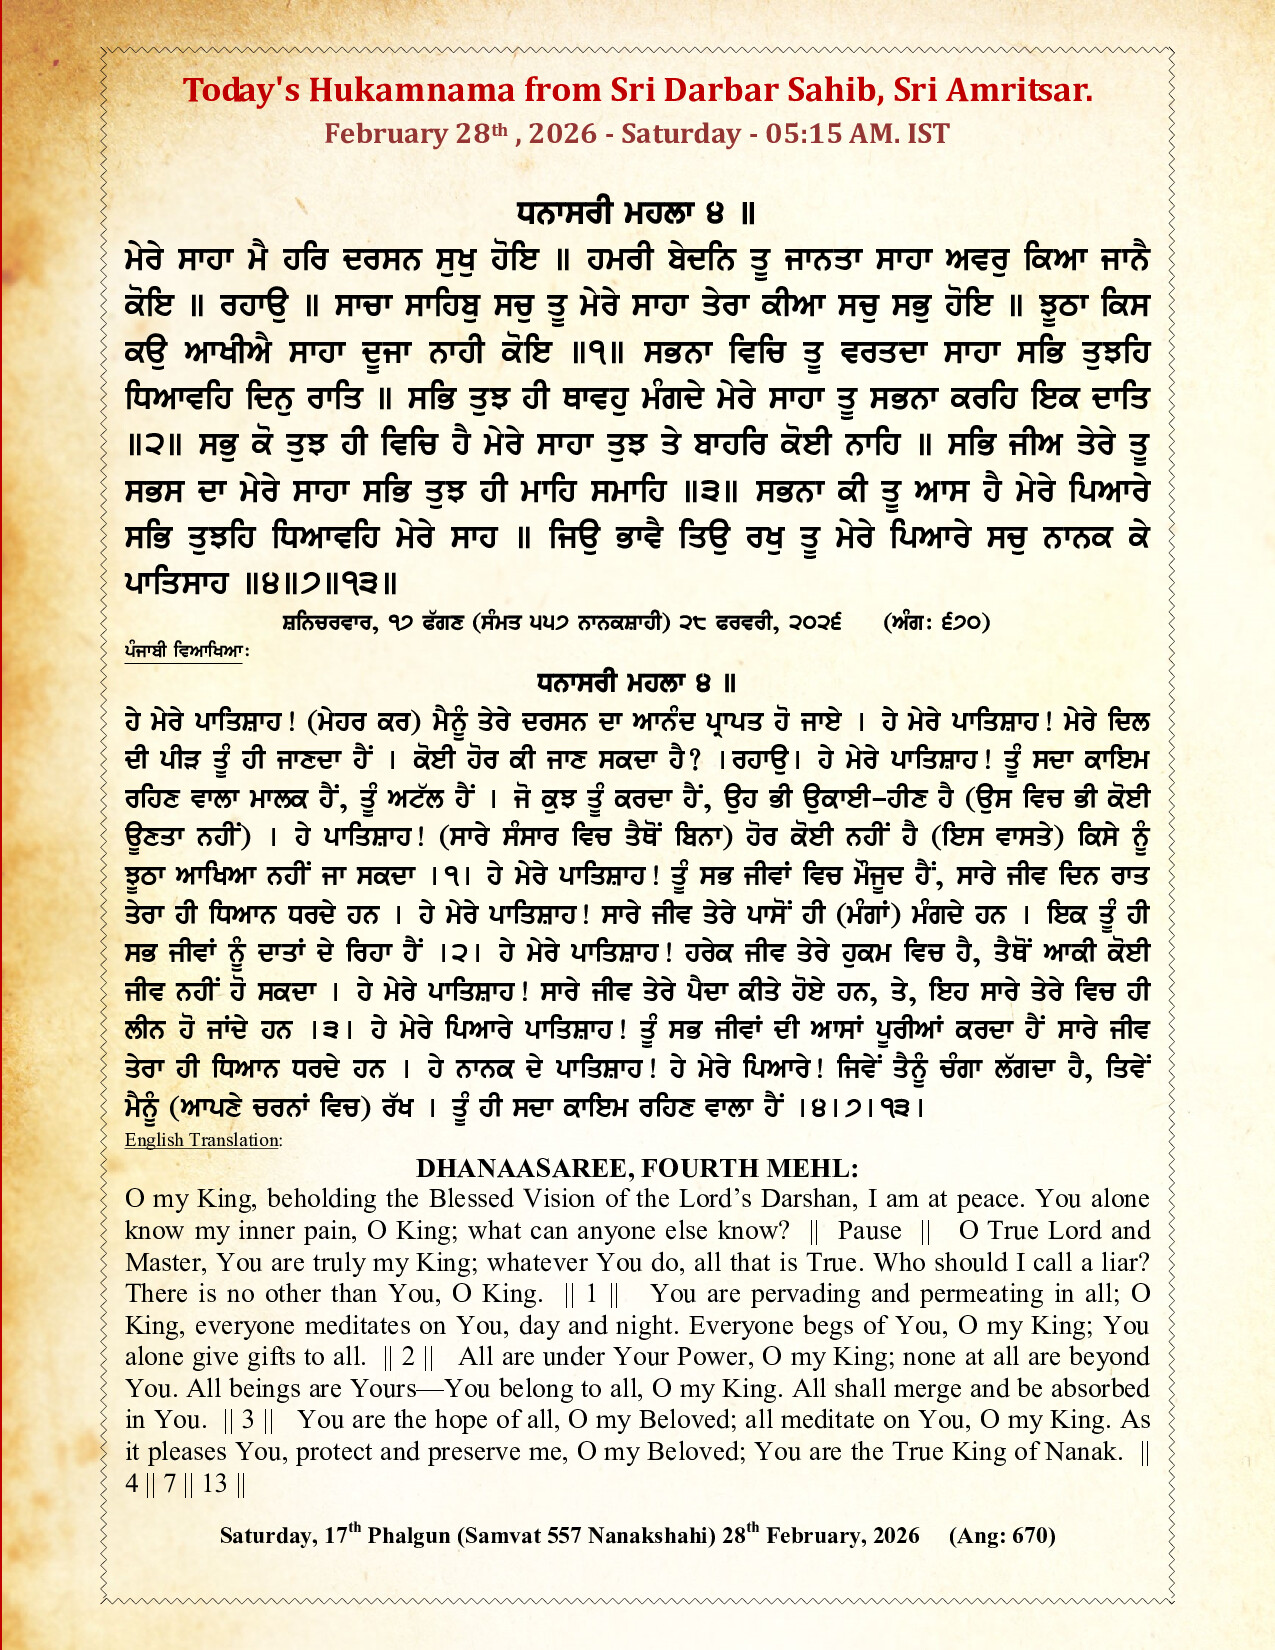 Today's Hukamnama from Sri Darbar Sahib, Sri Amritsar.
February 28th , 2026 - Saturday - 05:15 AM. IST
ਧਨਾਸਰੀ ਮਹਲਾ ੪ ॥
ਮੇਰੇ ਸਾਹਾ ਮੈ ਹਰਿ ਦਰਸਨ ਸੁਖੁ ਹੋਇ ॥ ਹਮਰੀ ਬੇਦਨਿ ਤੂ ਜਾਨਤਾ ਸਾਹਾ ਅਵਰੁ ਕਿਆ ਜਾਨੈ
ਕੋਇ ॥ ਰਹਾਉ ॥ ਸਾਚਾ ਸਾਹਿਬੁ ਸਚੁ ਤੂ ਮੇਰੇ ਸਾਹਾ ਤੇਰਾ ਕੀਆ ਸਚੁ ਸਭੁ ਹੋਇ ॥ ਝੂਠਾ ਕਿਸ
ਕਉ ਆਖੀਐ ਸਾਹਾ ਦੂਜਾ ਨਾਹੀ ਕੋਇ ॥੧॥ ਸਭਨਾ ਵਿਚਿ ਤੂ ਵਰਤਦਾ ਸਾਹਾ ਸਭਿ ਤੁਝਹਿ
ਧਿਆਵਹਿ ਦਿਨੁ ਰਾਤਿ ॥ ਸਭਿ ਤੁਝ ਹੀ ਥਾਵਹੁ ਮੰਗਦੇ ਮੇਰੇ ਸਾਹਾ ਤੂ ਸਭਨਾ ਕਰਹਿ ਇਕ ਦਾਤਿ
॥੨॥ ਸਭੁ ਕੋ ਤੁਝ ਹੀ ਵਿਚਿ ਹੈ ਮੇਰੇ ਸਾਹਾ ਤੁਝ ਤੇ ਬਾਹਰਿ ਕੋਈ ਨਾਹਿ ॥ ਸਭਿ ਜੀਅ ਤੇਰੇ ਤੂ
ਸਭਸ ਦਾ ਮੇਰੇ ਸਾਹਾ ਸਭਿ ਤੁਝ ਹੀ ਮਾਹਿ ਸਮਾਹਿ ॥੩॥ ਸਭਨਾ ਕੀ ਤੂ ਆਸ ਹੈ ਮੇਰੇ ਪਿਆਰੇ
ਸਭਿ ਤੁਝਹਿ ਧਿਆਵਹਿ ਮੇਰੇ ਸਾਹ ॥ ਜਿਉ ਭਾਵੈ ਤਿਉ ਰਖੁ ਤੂ ਮੇਰੇ ਪਿਆਰੇ ਸਚੁ ਨਾਨਕ ਕੇ
ਪਾਤਿਸਾਹ ॥੪॥੭॥੧੩॥
ਸ਼ਨਿਚਰਵਾਰ, ੧੭ ਫੱਗਣ (ਸੰਮਤ ੫੫੭ ਨਾਨਕਸ਼ਾਹੀ) ੨੮ ਫਰਵਰੀ, ੨੦੨੬ (ਅੰਗ: ੬੭੦)
ਪੰਜਾਬੀ ਵਿਆਖਿਆ:
ਧਨਾਸਰੀ ਮਹਲਾ ੪ ॥
ਹੇ ਮੇਰੇ ਪਾਤਿਸ਼ਾਹ! (ਮੇਹਰ ਕਰ) ਮੈਨੂੰ ਤੇਰੇ ਦਰਸਨ ਦਾ ਆਨੰਦ ਪ੍ਰਾਪਤ ਹੋ ਜਾਏ । ਹੇ ਮੇਰੇ ਪਾਤਿਸ਼ਾਹ! ਮੇਰੇ ਦਿਲ
ਦੀ ਪੀੜ ਤੂੰ ਹੀ ਜਾਣਦਾ ਹੈਂ । ਕੋਈ ਹੋਰ ਕੀ ਜਾਣ ਸਕਦਾ ਹੈ? ।ਰਹਾਉ। ਹੇ ਮੇਰੇ ਪਾਤਿਸ਼ਾਹ! ਤੂੰ ਸਦਾ ਕਾਇਮ
ਰਹਿਣ ਵਾਲਾ ਮਾਲਕ ਹੈਂ, ਤੂੰ ਅਟੱਲ ਹੈਂ । ਜੋ ਕੁਝ ਤੂੰ ਕਰਦਾ ਹੈਂ, ਉਹ ਭੀ ਉਕਾਈ-ਹੀਣ ਹੈ (ਉਸ ਵਿਚ ਭੀ ਕੋਈ
ਊਣਤਾ ਨਹੀਂ) । ਹੇ ਪਾਤਿਸ਼ਾਹ! (ਸਾਰੇ ਸੰਸਾਰ ਵਿਚ ਤੈਥੋਂ ਬਿਨਾ) ਹੋਰ ਕੋਈ ਨਹੀਂ ਹੈ (ਇਸ ਵਾਸਤੇ) ਕਿਸੇ ਨੂੰ
ਝੂਠਾ ਆਖਿਆ ਨਹੀਂ ਜਾ ਸਕਦਾ ।੧। ਹੇ ਮੇਰੇ ਪਾਤਿਸ਼ਾਹ! ਤੂੰ ਸਭ ਜੀਵਾਂ ਵਿਚ ਮੌਜੂਦ ਹੈਂ, ਸਾਰੇ ਜੀਵ ਦਿਨ ਰਾਤ
ਤੇਰਾ ਹੀ ਧਿਆਨ ਧਰਦੇ ਹਨ । ਹੇ ਮੇਰੇ ਪਾਤਿਸ਼ਾਹ! ਸਾਰੇ ਜੀਵ ਤੇਰੇ ਪਾਸੋਂ ਹੀ (ਮੰਗਾਂ) ਮੰਗਦੇ ਹਨ । ਇਕ ਤੂੰ ਹੀ
ਸਭ ਜੀਵਾਂ ਨੂੰ ਦਾਤਾਂ ਦੇ ਰਿਹਾ ਹੈਂ ।੨। ਹੇ ਮੇਰੇ ਪਾਤਿਸ਼ਾਹ! ਹਰੇਕ ਜੀਵ ਤੇਰੇ ਹੁਕਮ ਵਿਚ ਹੈ, ਤੈਥੋਂ ਆਕੀ ਕੋਈ
ਜੀਵ ਨਹੀਂ ਹੋ ਸਕਦਾ । ਹੇ ਮੇਰੇ ਪਾਤਿਸ਼ਾਹ! ਸਾਰੇ ਜੀਵ ਤੇਰੇ ਪੈਦਾ ਕੀਤੇ ਹੋਏ ਹਨ, ਤੇ, ਇਹ ਸਾਰੇ ਤੇਰੇ ਵਿਚ ਹੀ
ਲੀਨ ਹੋ ਜਾਂਦੇ ਹਨ ।੩। ਹੇ ਮੇਰੇ ਪਿਆਰੇ ਪਾਤਿਸ਼ਾਹ! ਤੂੰ ਸਭ ਜੀਵਾਂ ਦੀ ਆਸਾਂ ਪੂਰੀਆਂ ਕਰਦਾ ਹੈਂ ਸਾਰੇ ਜੀਵ
ਤੇਰਾ ਹੀ ਧਿਆਨ ਧਰਦੇ ਹਨ । ਹੇ ਨਾਨਕ ਦੇ ਪਾਤਿਸ਼ਾਹ! ਹੇ ਮੇਰੇ ਪਿਆਰੇ! ਜਿਵੇਂ ਤੈਨੂੰ ਚੰਗਾ ਲੱਗਦਾ ਹੈ, ਤਿਵੇਂ
ਮੈਨੂੰ (ਆਪਣੇ ਚਰਨਾਂ ਵਿਚ) ਰੱਖ । ਤੂੰ ਹੀ ਸਦਾ ਕਾਇਮ ਰਹਿਣ ਵਾਲਾ ਹੈਂ ।੪।੭।੧੩।
English Translation:
DHANAASAREE, FOURTH MEHL:
O my King, beholding the Blessed Vision of the Lord’s Darshan, I am at peace. You alone
know my inner pain, O King; what can anyone else know? || Pause || O True Lord and
Master, You are truly my King; whatever You do, all that is True. Who should I call a liar?
There is no other than You, O King. || 1 || You are pervading and permeating in all; O
King, everyone meditates on You, day and night. Everyone begs of You, O my King; You
alone give gifts to all. || 2 || All are under Your Power, O my King; none at all are beyond
You. All beings are Yours—You belong to all, O my King. All shall merge and be absorbed
in You. || 3 || You are the hope of all, O my Beloved; all meditate on You, O my King. As
it pleases You, protect and preserve me, O my Beloved; You are the True King of Nanak. ||
4 || 7 || 13 ||
Saturday, 17th Phalgun (Samvat 557 Nanakshahi) 28th February, 2026 (Ang: 670)